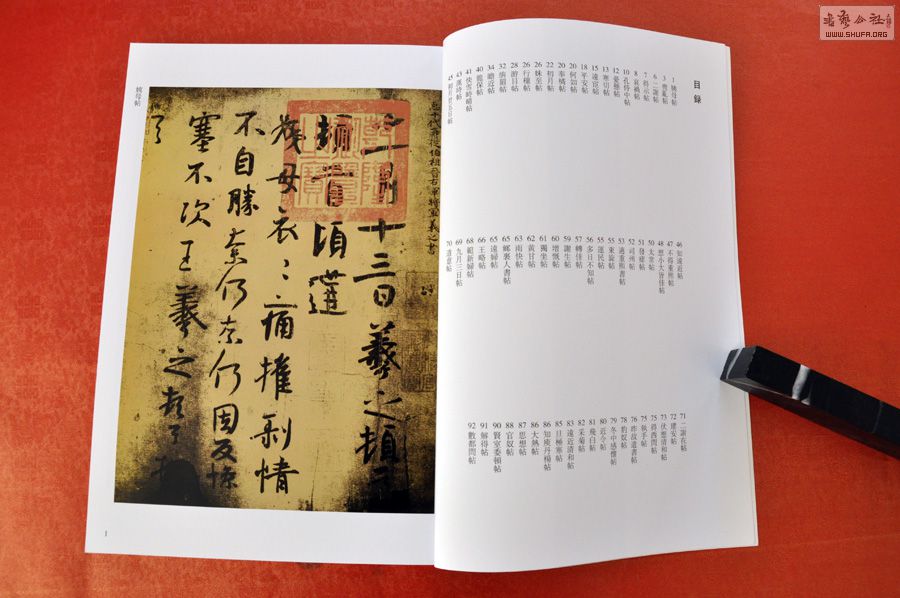 姨母帖
一月十三日羲之頓首
頓首頃遘
姨母哀哀痛摧剝情
不自勝奈何奈何因反慘
塞不次王羲之頓首頓首
1
目録
1 姨母帖
3 喪亂帖
6 二謝帖
7 得示帖
8 哀禍帖
10 孔侍中帖
12 憂懸帖
13 寒切帖
15 遠宦帖
18 平安帖
20 何如帖
20 奉橘帖
22 初月帖
26 妹至帖
26 行穰帖
28 游目帖
32
34 瞻近帖
40 龍保帖
41 快雪時晴帖
43 漢時帖
45 初月廿五日帖
46 知遠近帖
47 不得重熙帖
48 想小大皆佳帖
50 太常帖
51 發瘧帖
52 司州帖
53 適重熙書帖
55 東論帖
55 運民帖
56 多日不知帖
57 轉佳帖
59 謝生帖
60 增慨帖
61 獨坐帖
62 黃甘帖
63 雨快帖
65 鄉裏人書帖
65 遠婦帖
66 王略帖
68 範新婦帖
69 九月三日帖
70 意帖
71 二謝在帖
72 建安帖
73 伏想清和帖
75 得西問帖
75 執手帖
76 昨故遣書帖
78 豹奴帖
79 冬中感懷帖
80 近令帖
81 飛白帖
82 采菊帖
83 遠近清和帖
85 旦極寒帖
86 知庾丹楊帖
86 大熱帖
87 思想帖
88 官奴帖
90 賢室委頓帖
91 解得帖
92 數都問帖
書藝公社
WWW.SHUFA.ORG